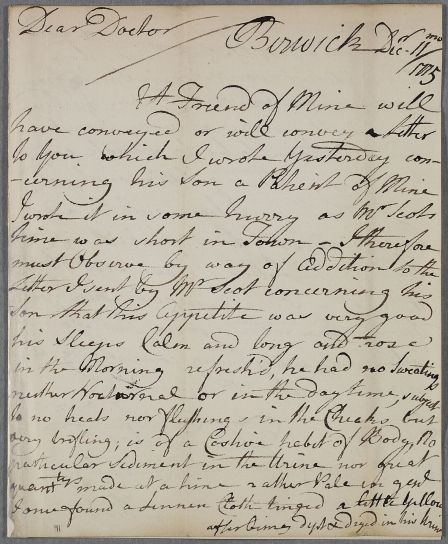 Dear Doctor
Berwick Decr. 11mo
1775
A Friend of Mine will
have conveyed or will convey a letter
to You, which I wrote Yesterday con-
-cerning his Son a Patient of Mine
I wrote it in some hurry as Mr Scots
time was short in Town – I therefore
must Observe by way of Addition to the
letter I sent by Mr Scot concerning his
Son that his Appetite was very good
his Sleeps Calm and long and rose
in the Morning refresh'd, he had no Sweating
neither Nocturnal or in the daytime, subject
to no heats nor flushings in the Cheeks but
very trifling; is of a Costive habit of Body, No
particular Sediment in the Urine nor great
quantitys made at a time rather Pale in genl
I once found a Linnen Cloth tinged a little Yellow
after being dipt & dryed in his Urine